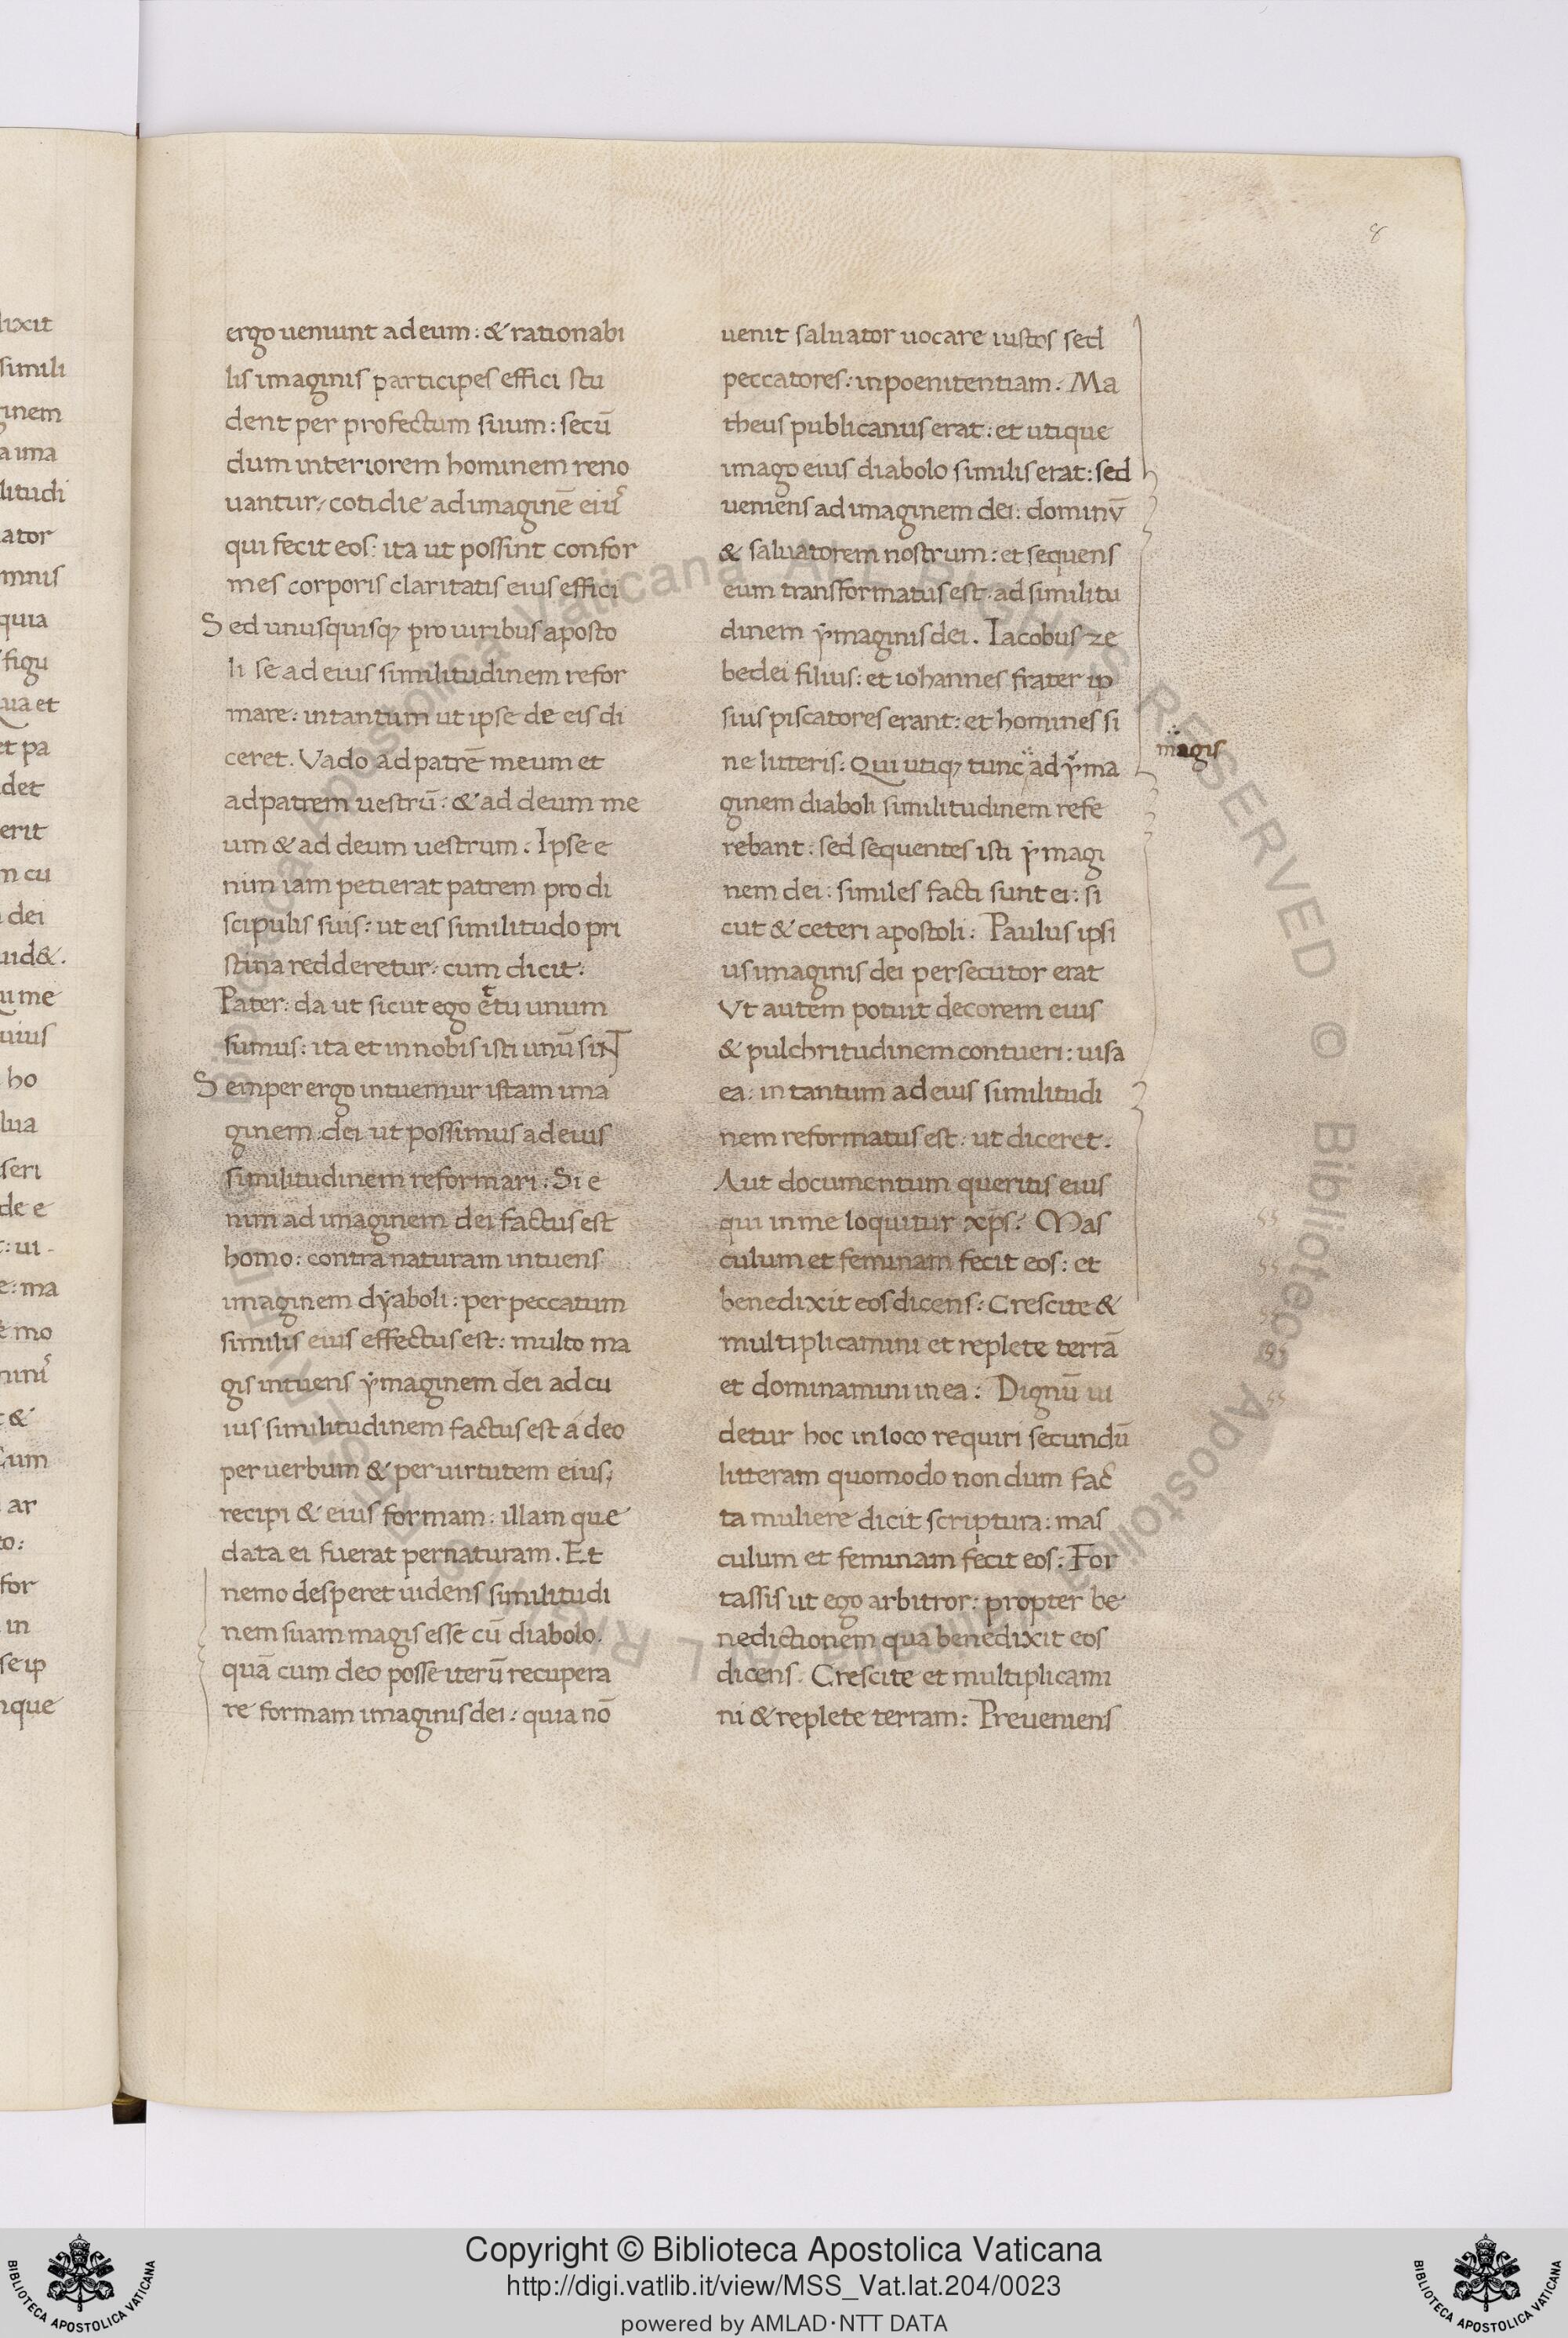 8
ergo ueniunt ad eum: & rationabi
lis imaginis participes effici stu
dent per profectum suum: secū
dum interiorem hominem reno
uantur: cotidie ad imaginē eiuſ
qui fecit eos: ita ut possint confor
mes corporis claritatis eius effici
Sed unusquisq; pro uiribus aposto
li se ad eius similitudinem refor
mare: in tantum ut ipse de eis di
ceret. Vado ad patrē meum et
ad patrem uestrū: & ad deum me
um & ad deum uestrum. Ipse e
nim iam petierat patrem pro di
scipulis suis: ut eis similitudo pri
stina redderetur: cum dicit:
Pater: da ut sicut ego et tu unum
sumus: ita et in nobis isti unū siNT
Semper ergo intuemur istam ima
ginem: dei ut possimus ad eius
similitudinem reformari: Si e
nim ad imaginem dei factus est
homo: contra naturam intuens
imaginem dyaboli: per peccatum
similis eius effectus est: multo ma
gis intuens ymaginem dei ad cu
ius similitudinem factus est a deo
per uerbum & per uirtutem eius;
recipi & eius formam: illam que
data ei fuerat per naturam. Et
nemo desperet uidens similitudi
nem suam magis esse cū diabolo.
quā cum deo posse iterū recupera
re formam imaginis dei: quia nō
uenit saluator uocare iustos sed
peccatores: in poenitentiam. Ma
theus publicanus erat: et utique
imago eius diabolo similis erat: sed
ueniens ad imaginem dei: dominv̄
& saluatorem nostrum: et sequens
eum transformatus est. ad similitu
dinem ymaginis dei. Iacobus ze
bedei filius: et iohannes frater ip
sius piscatores erant: et homines si
ne litteris: Qui utiq; tunc ad yma
magis
ginem diaboli similitudinem refe
rebant: sed sequentes isti ymagi
nem dei: similes facti sunt ei: si
cut & ceteri apostoli: Paulus ipsi
us imaginis dei persecutor erat
Vt autem potuit decorem eius
& pulchritudinem contueri: uisa
ea: in tantum ad eius similitudi
nem reformatus est: ut diceret.
Aut documentum queritis eius
qui in me loquitur xp̄s: Mas
culum et feminam fecit eos: et
benedixit eos dicens: Crescite &
multiplicamini et replete terrā
et dominamini in ea: Dignū ui
detur hoc in loco requiri secundū
litteram quomodo non dum fac
ta muliere dicit scriptura: mas
culum et feminam fecit eos: For
tassis ut ego arbitror: propter be
nedictionem qua benedixit eos
dicens. Crescite et multiplicami
ni & replete terram: Preueniens
Copyright © Biblioteca Apostolica Vaticana
http://digi.vatlib.it/view/MSS_Vat.lat.204/0023
powered by AMLAD·NTT DATA